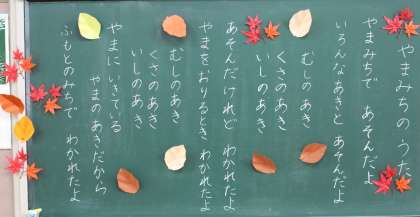 やまみちの うた
やまみちで あそんだよ
いろんなあきと あそんだよ
むしの あき
くさのあき
いしのあき
あそんだけれど わかれたよ
やまをおりるとき わかれたよ
むしのあき
くさのあき
いしのあき
やまに いきている
やまのあきだから
ふもとのみちで わかれたよ